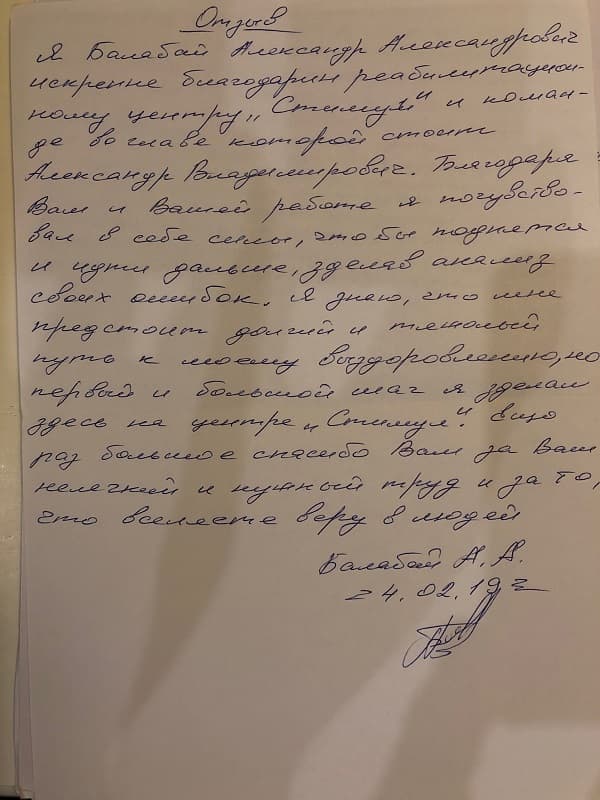 Отзыв
Я Балабай Александр Александрович
искренне благодарин реабилитацион-
ному центру „Стимул" и коман-
де во главе которой стоит
Александр Владимирович. Благодаря
Вам и Вашей работе я почувство-
вал в себе силы, чтобы поднятся
и идти дальше, зделав анализ
своих ошибок. Я знаю, что мне
предстоит долгий и тяжолый
путь к моему выздоровлению, но
первый и большой шаг я зделал
здесь на центре „Стимул". Ещо
раз большое спасибо Вам за Ваш
нелегкий и нужный труд и за то,
что вселяете веру в людей
Балабай А. А.
24.02.19г